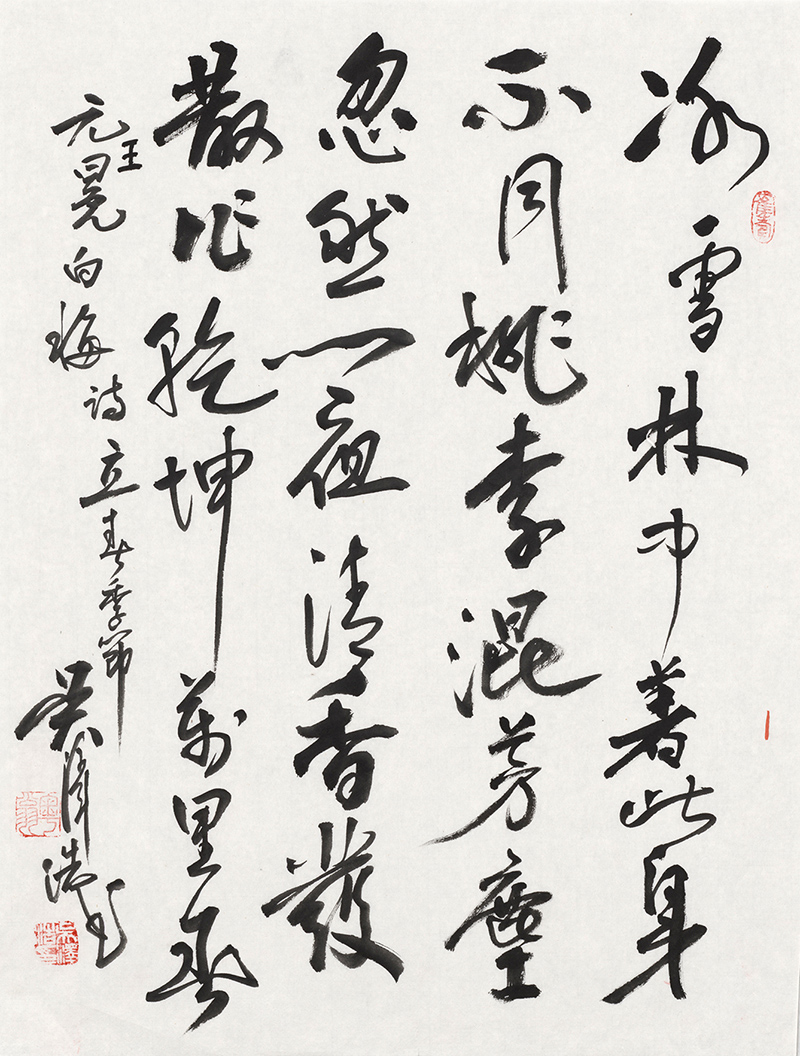 冰雪林中著此身
不同桃李混芳塵
忽然一夜清香發
散作乾坤萬里春
元王冕白梅诗立春季节吴泽浩书